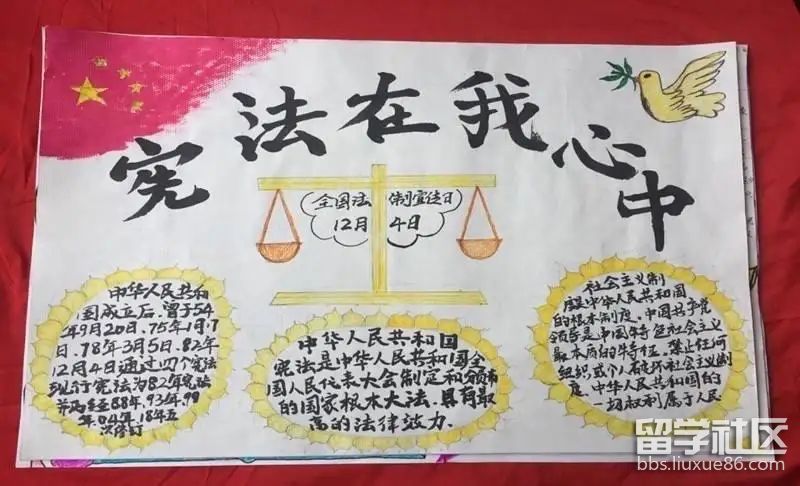 宪法在我心中
全国法制宣传日
12月4日
中华人民共和
国成立后,曾于54
年9月20日.75年1月17
日.78年3月5日.82年
12月4日通过四个宪法
现行宪法为82年宪法
并历经88年.93年.99
年.04年.18年五
次修订
中华人民共和国
宪法是中华人民共和国全
国人民代表大会制定和颁布
的国家根本大法.具有最
高的法律效力.
社会主义制
度是中华人民共和国
的根本制度.中国共产党
领导是中国特色社会主义
最本质的特征.禁止任何
组织或个人破坏社会主义制
度.中华人民共和国的一
切权利属于人民
留学社区
bbs.liuxue86.com